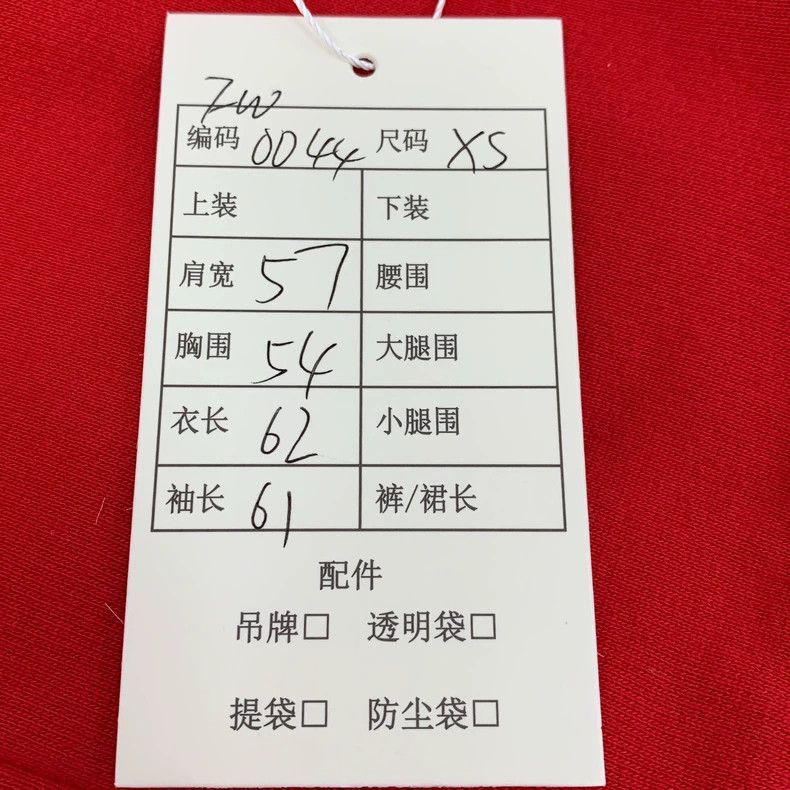 ZW
编码 0044 尺码 XS
上装 下装
肩宽 57 腰围
胸围 54 大腿围
衣长 62 小腿围
袖长 61 裤/裙长
配件
吊牌□ 透明袋□
提袋□ 防尘袋□